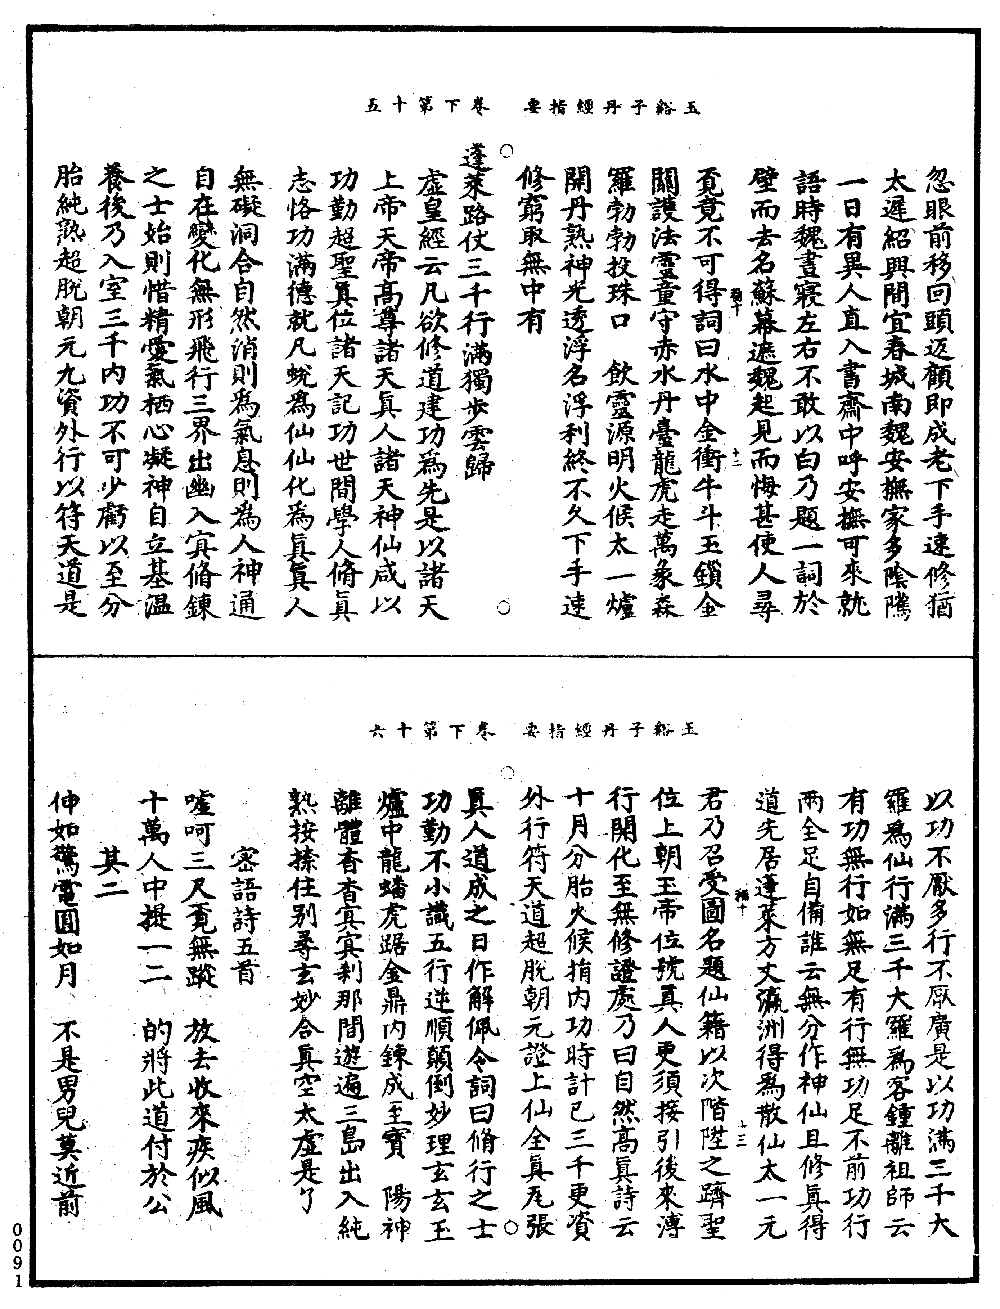 玉谿子丹經指要　卷下第十五
忽眼前移回頭返顧即成老下手速修猶
太遲紹興間宜春城南魏安撫家多陰隲
一日有異人直入書齋中呼安撫可來就
語時魏晝寢左右不敢以白乃題一詞於
壁而去名蘇幕遮魏起見而悔甚使人尋
覔竟不可得詞曰水中金衝牛斗玉鎖金
關護法靈童守赤水丹臺龍虎走萬象森
羅勃勃投珠口　飲靈源明火候太一爐
開丹熟神光透浮名浮利終不久下手速
修窮取無中有
蓬萊路仗三千行滿獨步雲歸
虛皇經云凡欲修道建功為先是以諸天
上帝天帝高尊諸天眞人諸天神仙咸以
功勤超聖眞位諸天記功世間學人脩眞
志恪功滿德就凡蛻為仙仙化為眞眞人
無礙洞合自然消則為氣息則為人神通
自在變化無形飛行三界出幽入冥脩鍊
之士始則惜精愛氣栖心凝神自立基溫
養後乃入室三千內功不可少虧以至分
胎純熟超脫朝元九資外行以符天道是
玉谿子丹經指要　卷下第十六
以功不厭多行不厭廣是以功滿三千大
羅為仙行滿三千大羅為客鍾離祖師云
有功無行如無足有行無功足不前功行
兩全足自備誰云無分作神仙且修眞得
道先居蓬萊方丈瀛洲得為散仙太一元
君乃召受圖名題仙籍以次階陞之躋聖
位上朝玉帝位號眞人更須接引後來溥
行開化至無修證處乃曰自然高眞詩云
十月分胎火候揹內功時計已三千更資
外行符天道超脫朝元證上仙全眞尪張
眞人道成之日作解佩令詞曰脩行之士
功勤不小識五行逆順顛倒妙理玄玄玉
爐中龍蟠虎踞金鼎內鍊成至寶　陽神
離體杳杳冥冥剎那間遊遍三島出入純
熟按搽住別尋玄妙合眞空太虛是了
密語詩五首
噓呵三尺覔無蹤　放去收來疾似風
十萬人中提一二　的將此道付於公
其二
伸如驚電圓如月　不是男兒莫近前
0091